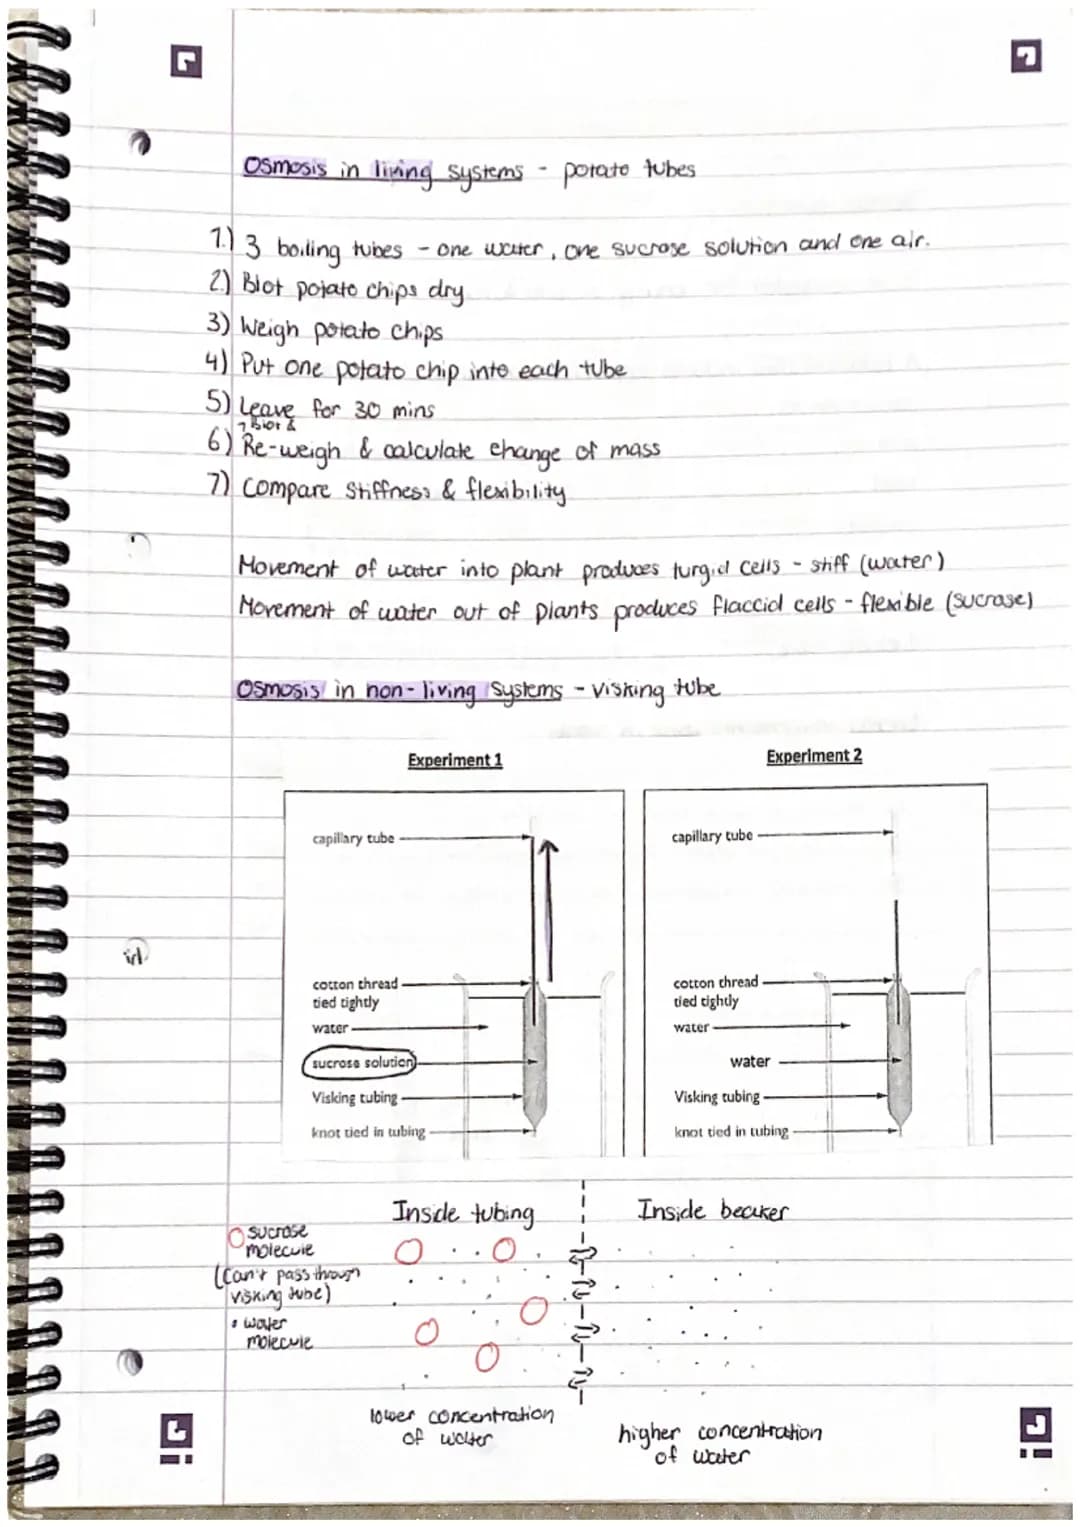 Osmosis in living systems - potato tubes
1.) 3 boiling tubes - one water, one sucrose solution and one air.
2.) Blot potato chips dry
3) Weigh potato chips
4) Put one potato chip into each tube
5) Leave for 30 mins
Blot &
6) Re-weigh & calculate change of mass
7) Compare stiffness & flexibility
Movement of water into plant produces turgid cells - stiff (water)
Movement of water out of plants produces flaccid cells - flexible (sucrose)
Osmosis in non-living systems - visking tube
Experiment 1
capillary tube
cotton thread
tied tightly
water
sucrose solution
Visking tubing
knot tied in tubing
Experiment 2
capillary tube
cotton thread
tied tightly
water
water
Visking tubing
knot tied in tubing
Inside tubing
Inside beaker
sucrose
molecule
(can't pass through
visking tube)
water
molecule
lower concentration
of water
higher concentration
of water